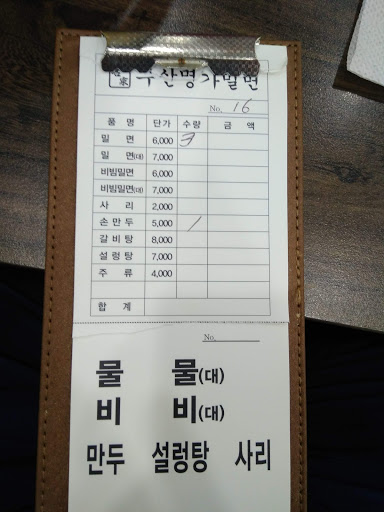 수산명가밀면
No. 16
품 명 단가 수량 금 액
밀 면 6,000 3
밀 면(대) 7,000
비빔밀면 6,000
비빔밀면(대) 7,000
사 리 2,000
손 만 두 5,000 /
갈 비 탕 8,000
설 렁 탕 7,000
주 류 4,000
합 계
No.
물 물(대)
비 비(대)
만두 설렁탕 사리